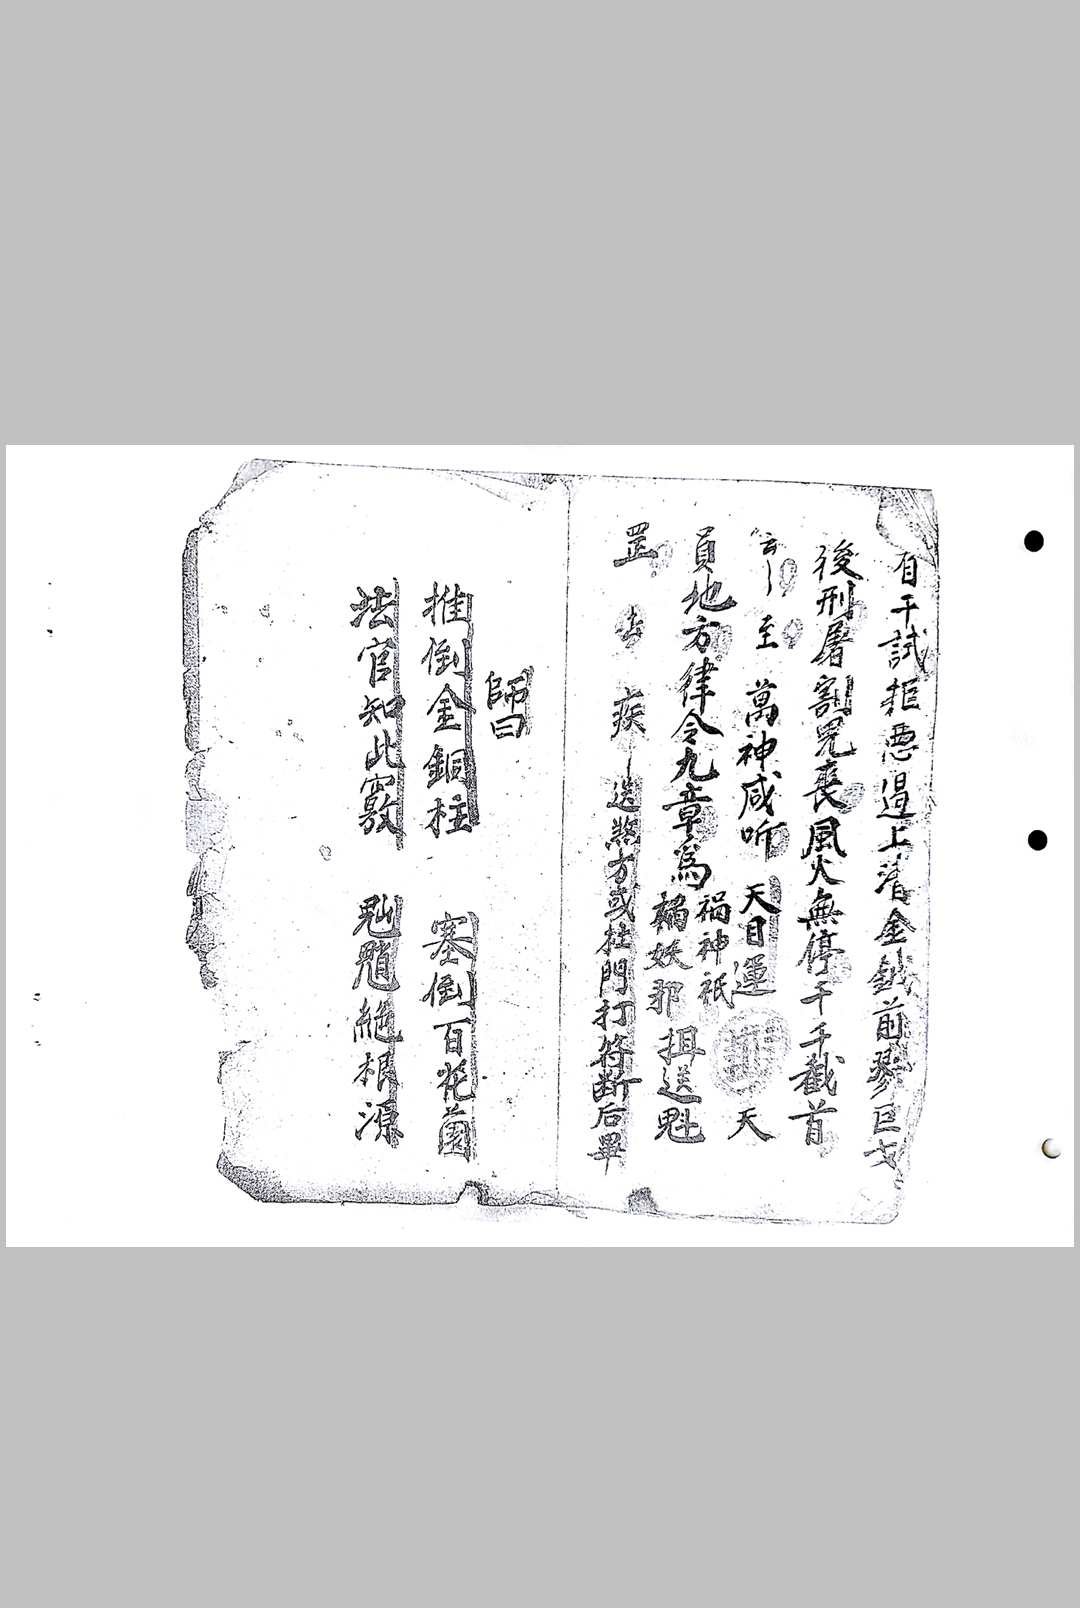 有干試拒惡過上清金鉞前參巨戈
後刑屠割鬼喪風火無停千千截首
云至萬神咸听天目運天
員地方律令九章為禍神祇
禍妖邪揖送魁
罡去疾送煞方或在門打符断后畢
師曰
推倒金銅柱 塞倒百花園
法官知此竅 絶根源